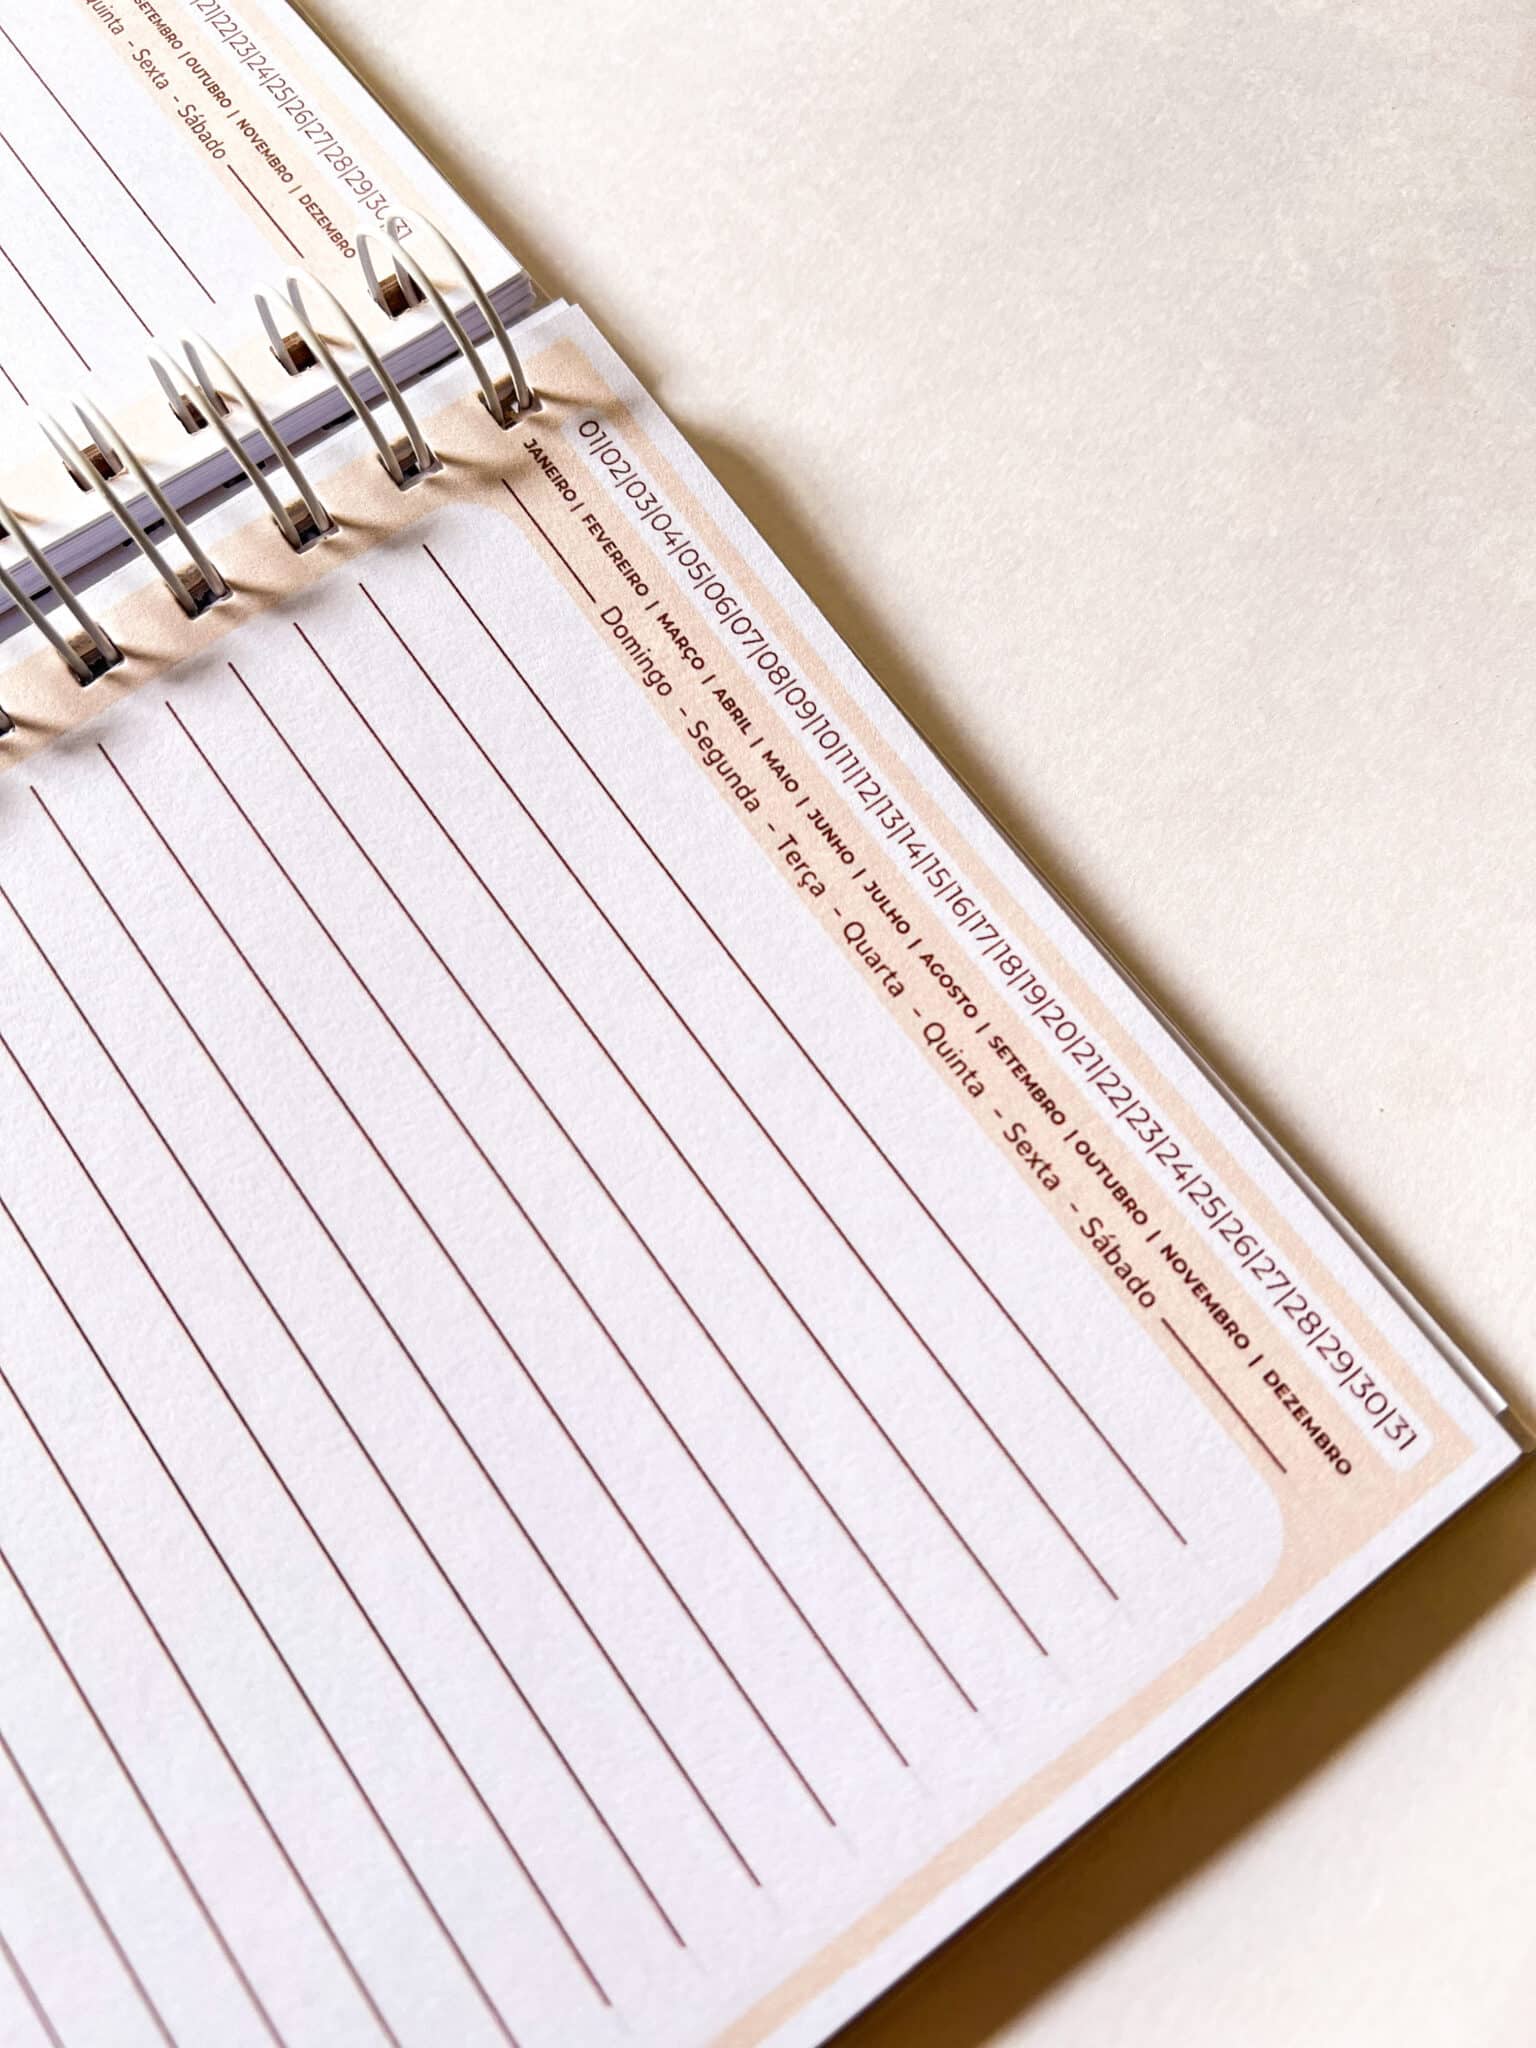 21|22|23|24|25|26|27|28|29|30|31
SETEMBRO | OUTUBRO | NOVEMBRO | DEZEMBRO
- Sexta - Sábado
01|02|03|04|05|06|07|08|09|10|11|12|13|14|15|16|17|18|19|20|21|22|23|24|25|26|27|28|29|30|31
JANEIRO | FEVEREIRO | MARÇO | ABRIL | MAIO | JUNHO | JULHO | AGOSTO | SETEMBRO | OUTUBRO | NOVEMBRO | DEZEMBRO
Domingo - Segunda - Terça - Quarta - Quinta - Sexta - Sábado